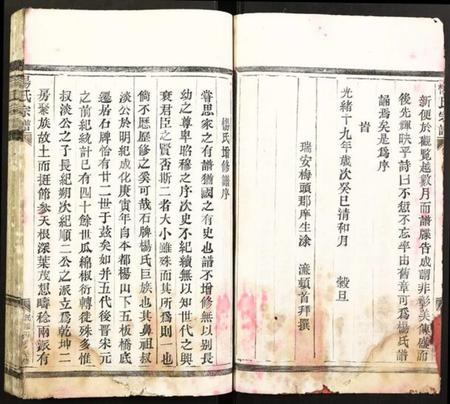 新便於觀覽越數月而譜牒告成詞非彰美傳盛而
後先輝映乎詩曰不愆不忘率由舊章可爲楊氏譜
誦焉矣是爲序
旹
光緒十九年歲次癸巳清和月 穀旦
瑞安梅頭那摩生涂 濂頓首拜撰
楊氏增修譜序
嘗思家之有譜猶國之有史也譜不增修無以別長
幼之尊卑昭穆之序次史不紀續無以知世代之興
衰君臣之賢否斯二者大小雖殊而其所爲則一也
倘不歷歷修之奚可哉石牌楊氏巨族也其鼻祖叔
淡公於明紀成化庚寅年自本都楊山下五板橋底
遷居石牌恰有廿二世于茲矣如并五代後晉宋元
之前紀統計已有四十餘世瓜綿椒衍轉徙殊多惟
叔淡公之子長紀朔次紀順二公之派立爲乾坤二
房聚族故土而挺節參天根深葉茂思疇稔兩派有
楊氏宗譜